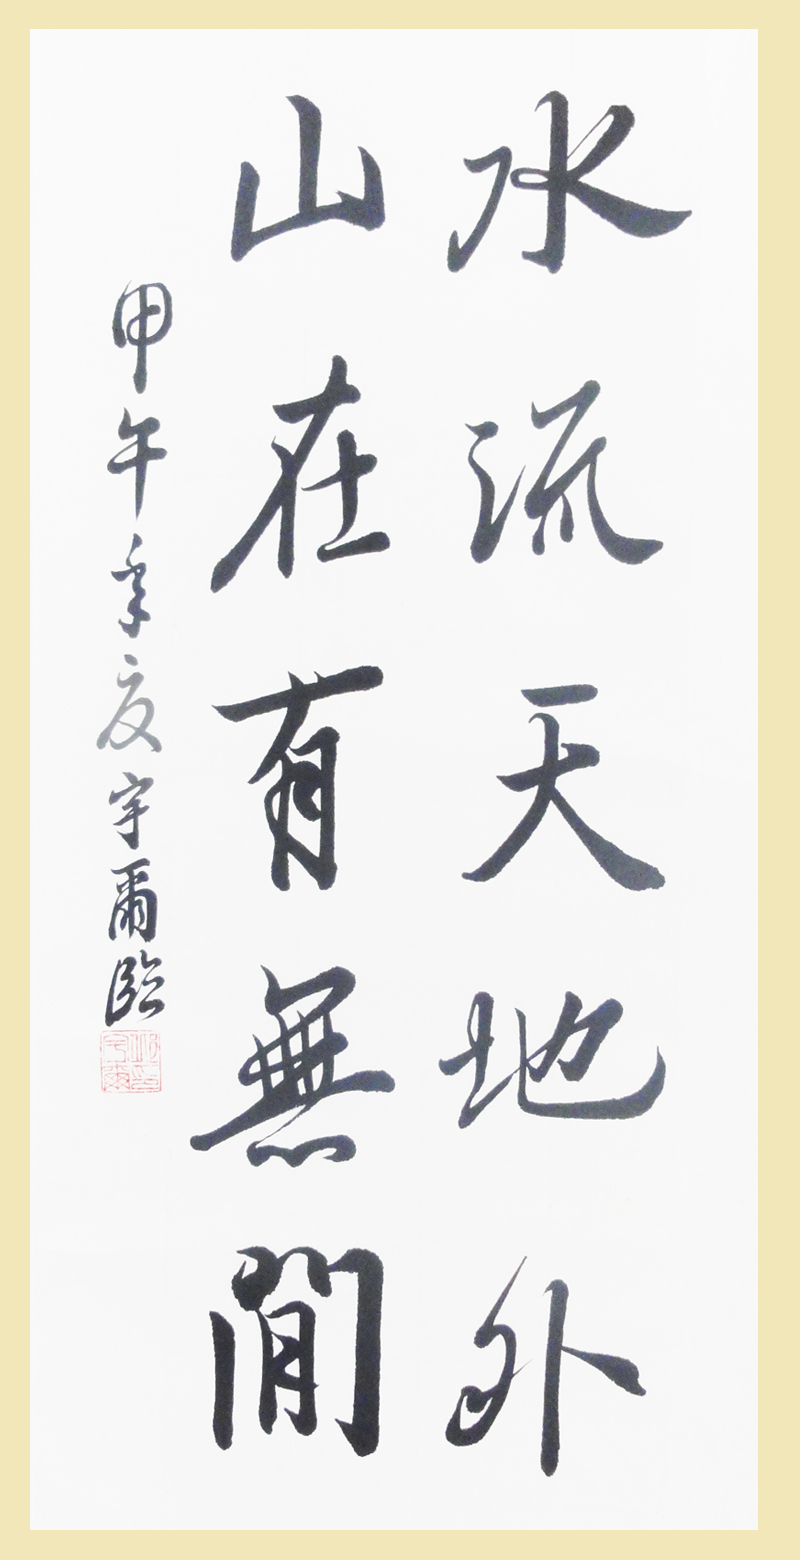 水流天地外
山在有無間
甲午年夏宇爾臨